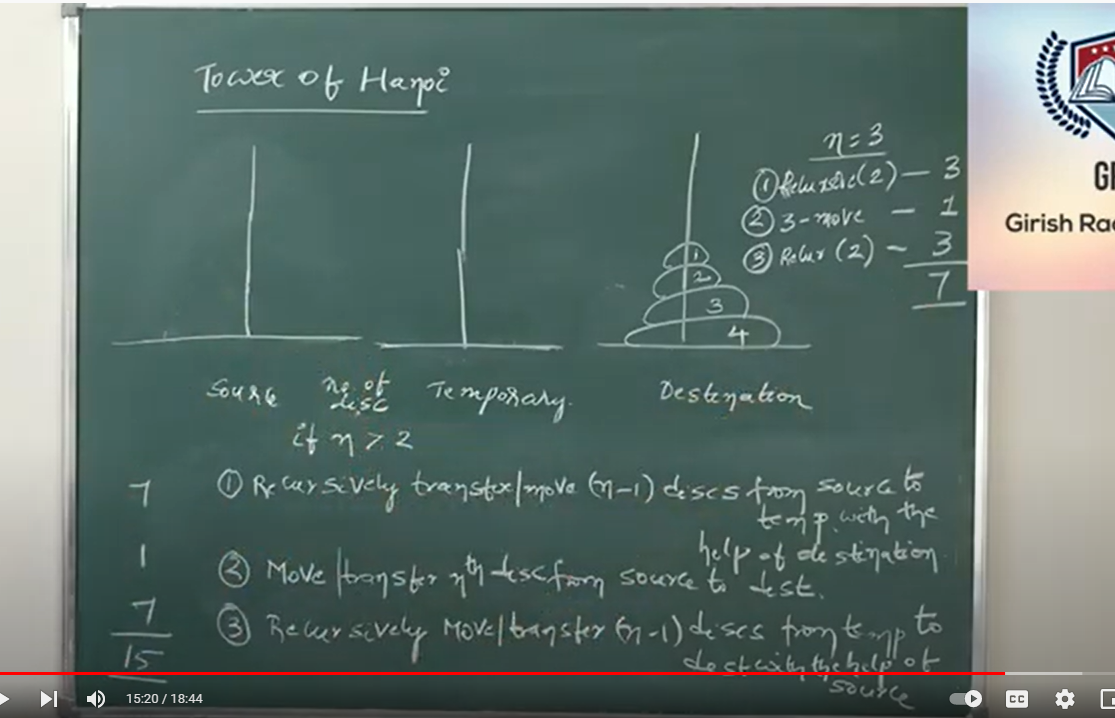 Tower of Hanoi
n = 3
① Recursive(2) — 3
② 3-move — 1
③ Recur (2) — 3
7
1
2
3
4
Source
no. of
disc
Temporary.
Destination
if n > 2
7 ① Recursively transfer/move (n-1) discs from source to
temp. with the
help of destination.
1 ② Move/transfer nth disc from source to dest.
7 ③ Recursively Move/transfer (n-1) discs from temp to
15
dest with the help of
source
Girish Rao
15:20 / 18:44
CC